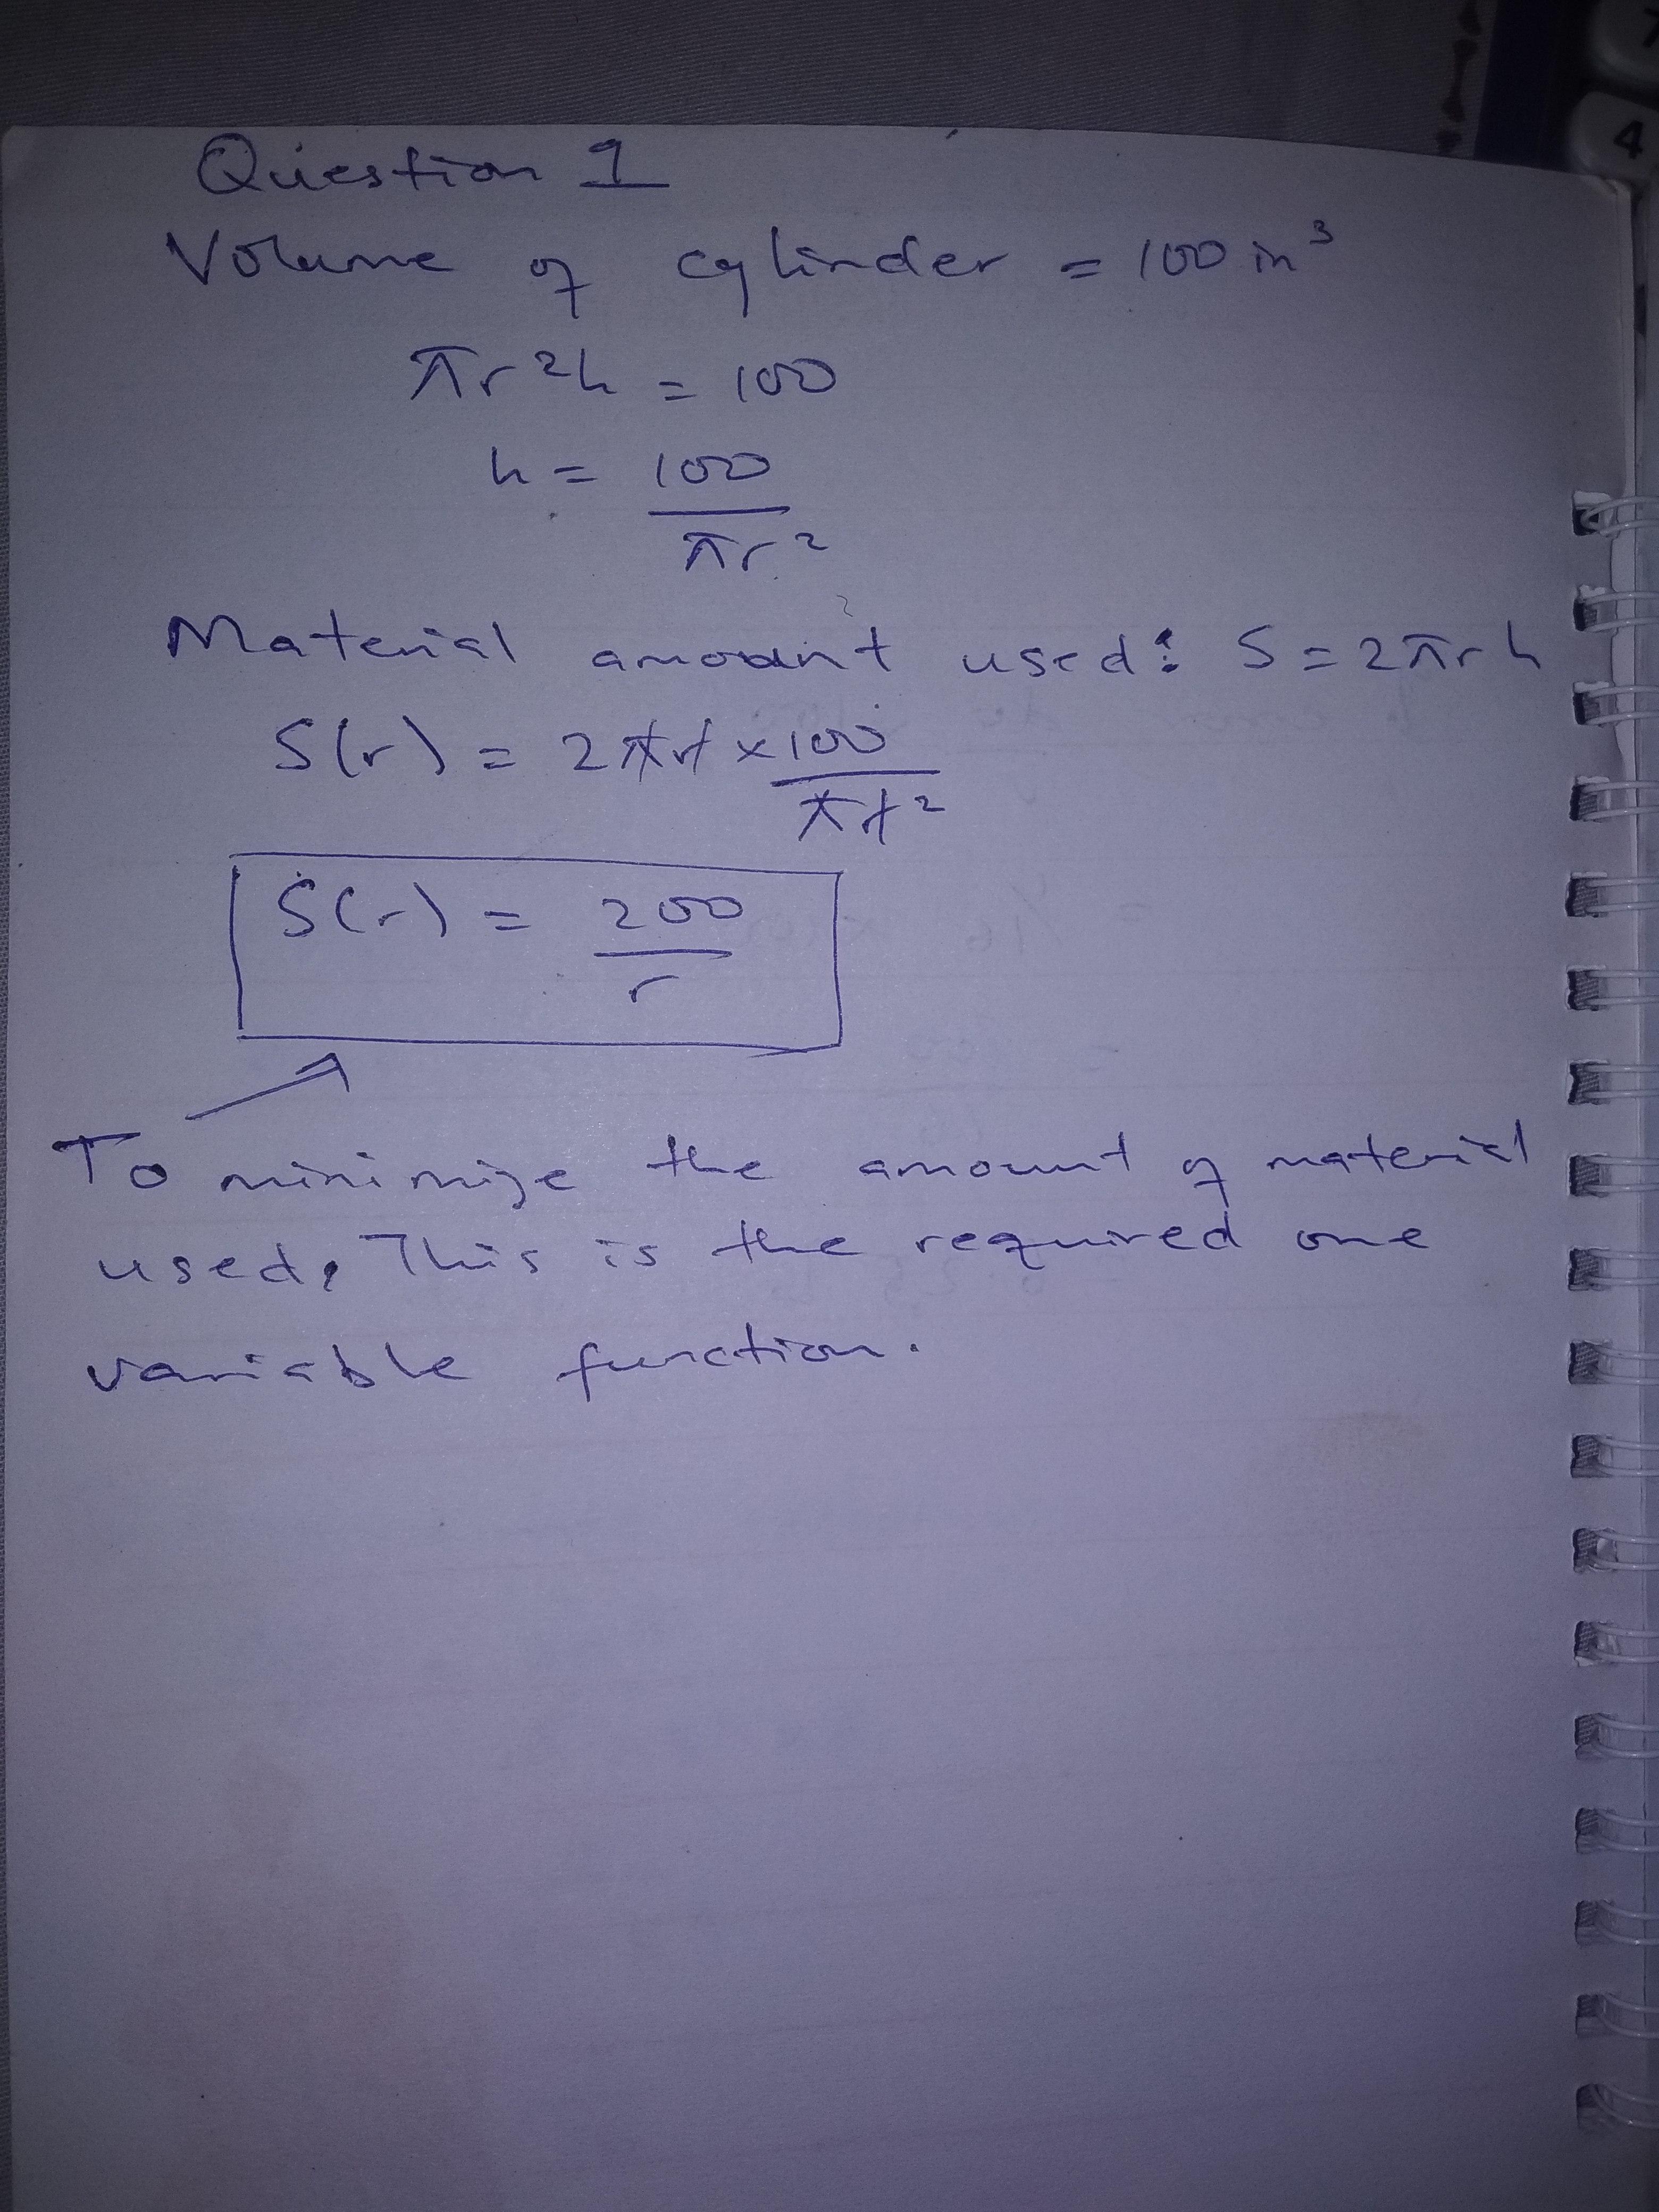 Question 1
Volume of cylinder = 100 in³
πr²h = 100
h = 100
πr²
Material amount used: S = 2πrh
S(r) = 2πr × 100
πr²
S(r) = 200
r
To minimize the amount of material
used, This is the required one
variable function.
7
4